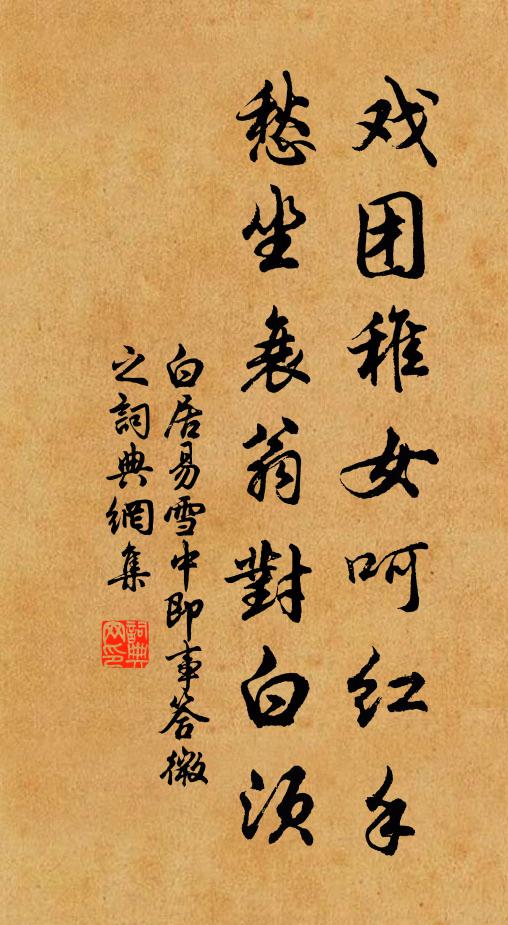 戏团稚女呵红手
愁坐衰翁對白须
白居易雪中即事答微
之詞典網集
詞典網印